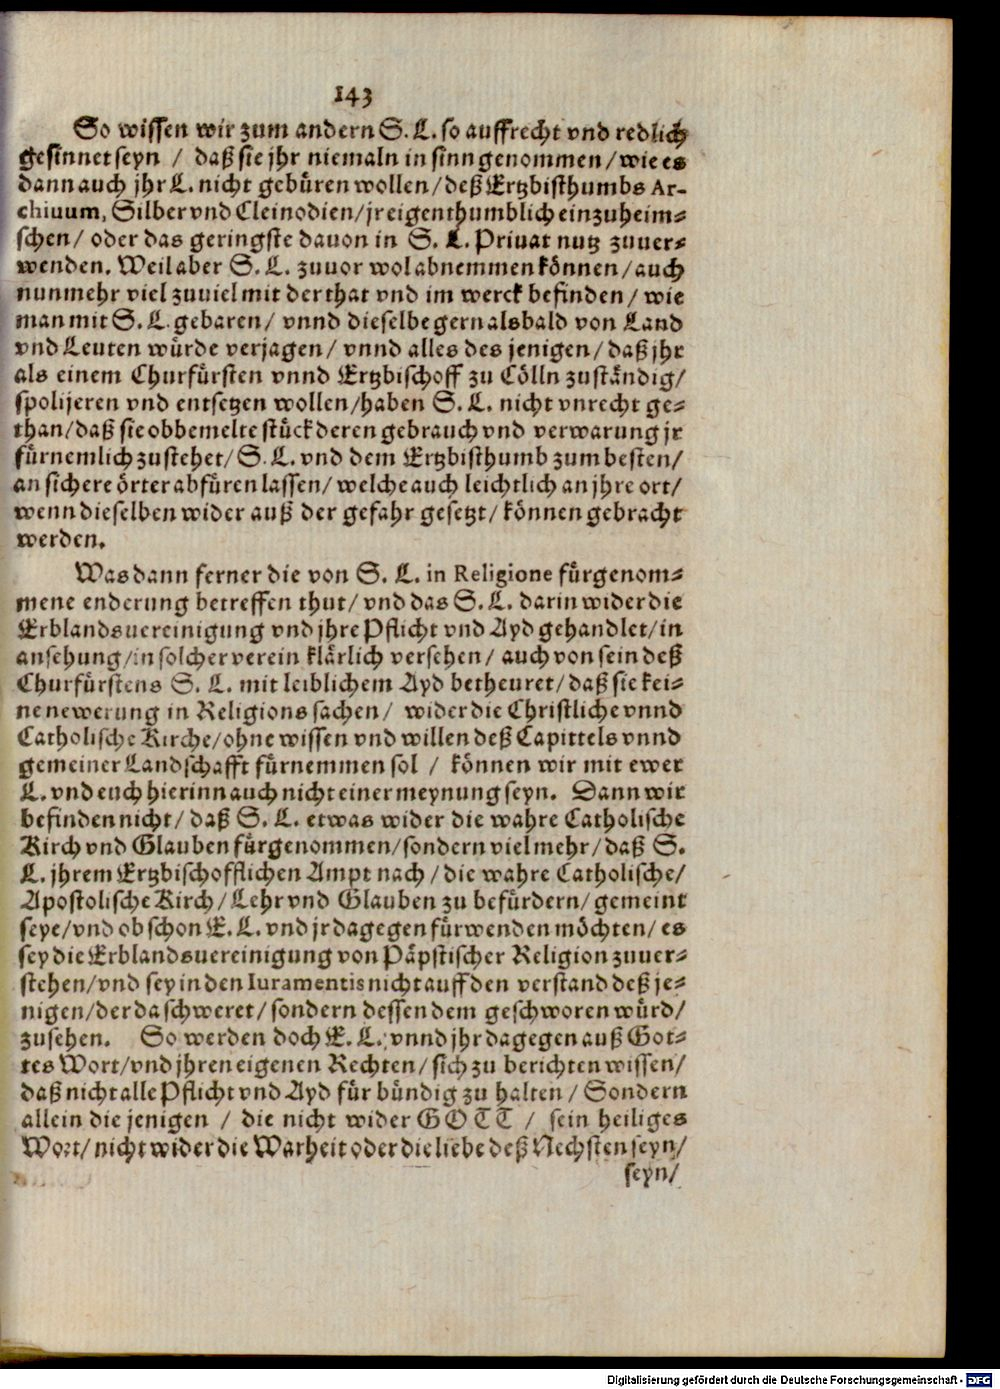 143
So wissen wir zum andern S. L. so auffrecht vnd redlich
gesinnet seyn / daß sie jhr niemaln in sinn genommen / wie es
dann auch jhr L. nicht gebüren wollen / deß Ertzbisthumbs Ar-
chiuum, Silber vnd Cleinodien / jr eigenthumblich einzuheim-
schen / oder das geringste dauon in S. L. Priuat nutz zuuer-
wenden. Weil aber S. L. zuuor wol abnemmen können / auch
nunmehr viel zuuiel mit der that vnd im werck befinden / wie
man mit S. L. gebaren / vnnd dieselbe gern alsbald von Land
vnd Leuten würde verjagen / vnnd alles des jenigen / daß jhr
als einem Churfürsten vnnd Ertzbischoff zu Cölln zuständig /
spolijeren vnd entsetzen wollen / haben S. L. nicht vnrecht ge-
than / daß sie obbemelte stück deren gebrauch vnd verwarung jr
fürnemlich zustehet / S. L. vnd dem Ertzbisthumb zum besten /
an sichere örter abfüren lassen / welche auch leichtlich an jhre ort /
wenn dieselben wider auß der gefahr gesetzt / können gebracht
werden.
Was dann ferner die von S. L. in Religione fürgenom-
mene enderung betreffen thut / vnd das S. L. darin wider die
Erblandsuereinigung vnd jhre Pflicht vnd Ayd gehandlet / in
ansehung / in solcher verein klärlich versehen / auch von sein deß
Churfürstens S. L. mit leiblichem Ayd betheuret / daß sie kei-
ne newerung in Religions sachen / wider die Christliche vnnd
Catholische Kirche / ohne wissen vnd willen deß Capittels vnnd
gemeiner Landschafft fürnemmen sol / können wir mit ewer
L. vnd euch hierinn auch nicht einer meynung seyn. Dann wir
befinden nicht / daß S. L. etwas wider die wahre Catholische
Kirch vnd Glauben fürgenommen / sondern vielmehr / daß S.
L. jhrem Ertzbischofflichen Ampt nach / die wahre Catholische /
Apostolische Kirch / Lehr vnd Glauben zu befürdern / gemeint
seye / vnd ob schon E. L. vnd jr dagegen fürwenden möchten / es
sey die Erblandsuereinigung von Päpstischer Religion zuuer-
stehen / vnd sey in den Iuramentis nicht auff den verstand deß je-
nigen / der da schweret / sondern dessen dem geschworen würd /
zusehen. So werden doch E. L. vnnd jhr dagegen auß Got-
tes Wort / vnd jhren eigenen Rechten / sich zu berichten wissen /
daß nicht alle Pflicht vnd Ayd für bündig zu halten / Sondern
allein die jenigen / die nicht wider GOTT / sein heiliges
Wort / nicht wider die Warheit oder die liebe deß Nechsten seyn /
seyn /
Digitalisierung gefördert durch die Deutsche Forschungsgemeinschaft - DFG